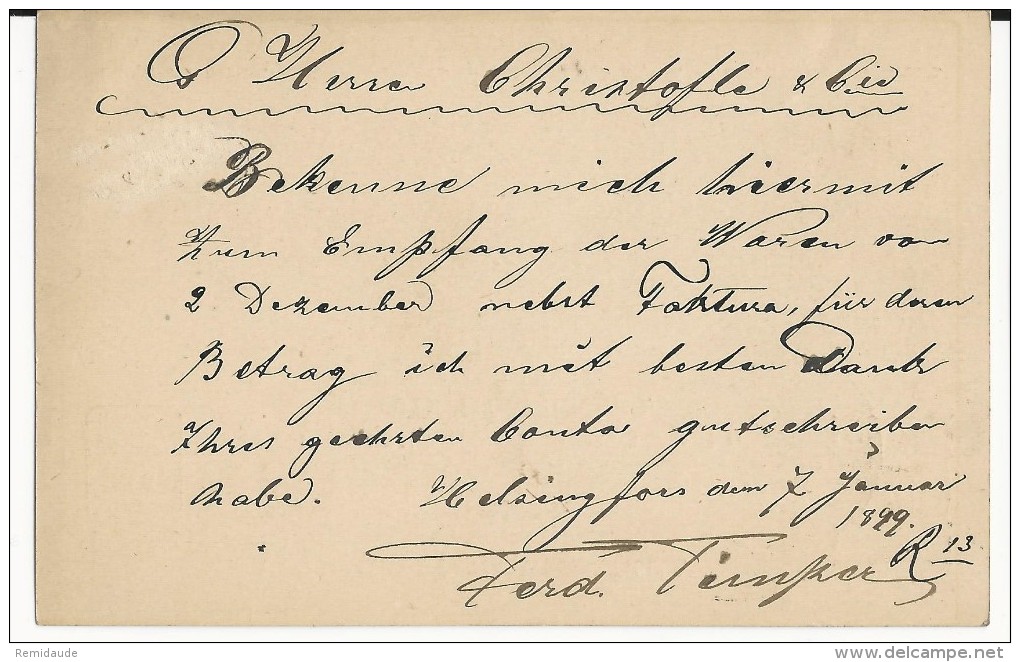 Herren Christofle & Cie
Bekenne mich hiermit
zum Empfang der Waren von
2 Dezember nebst Faktura, für deren
Betrag ich mit besten Dank
Ihres geehrten Conto gutschreiben
habe. Helsingfors dem 7 Januar
1899.
R 13
Ferd.
Remidaude
delcampe.net